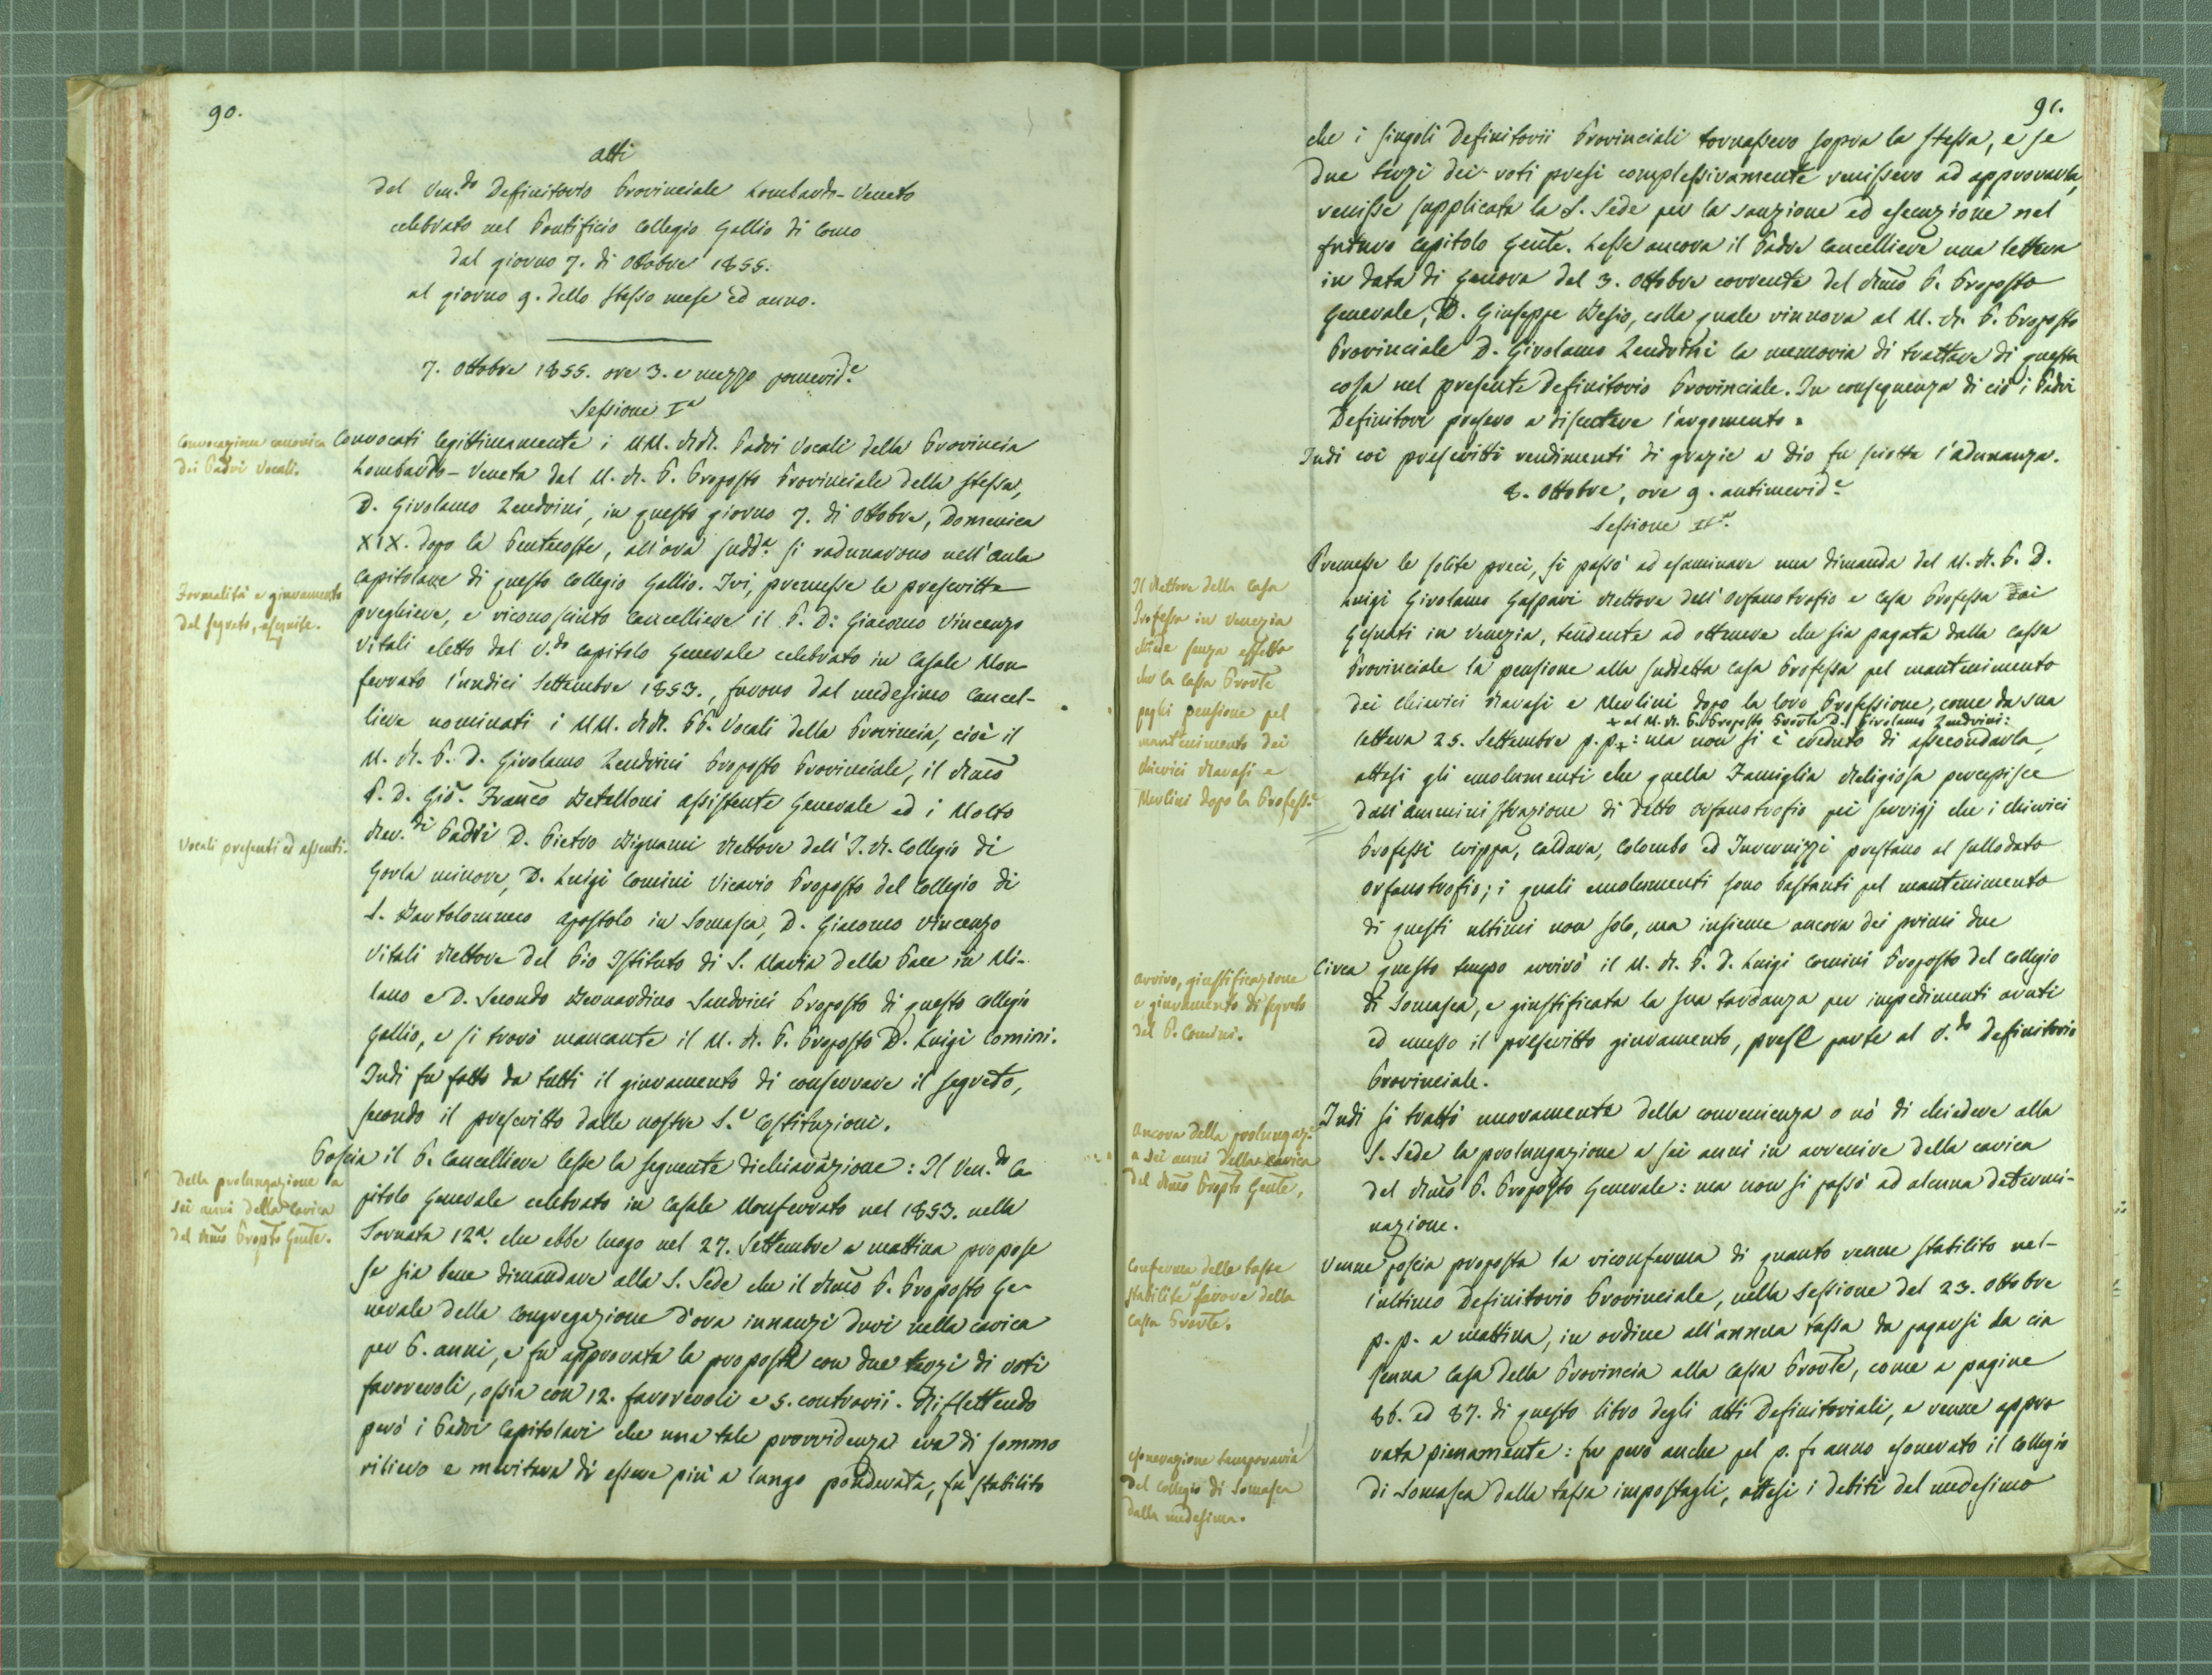 90.
Atti
Del Ven.do Definitorio Provinciale Lombardo-Veneto
celebrato nel Pontificio Collegio Gallio di Como
dal giorno 7. di Ottobre 1855.
al giorno 9. dello stesso mese ed anno.
7. Ottobre 1855. ore 3. e mezzo pomerid.e
Sessione I.a
Convocazione canonica
dei Padri Vocali.
Convocati legittimamente i MM. RR. Padri Vocali della Provincia
Lombardo-Veneta dal M. R. P. Preposto Provinciale della stessa,
D. Girolamo Zendrini, in questo giorno 7. di Ottobre, Domenica
XIX. dopo la Pentecoste, all'ora sudd.a si radunarono nell'Aula
Capitolare di questo Collegio Gallio. Ivi, premesse le prescritte
Formalità e giuramento
del segreto, eseguite.
preghiere, e riconosciuto Cancelliere il P. D: Giacomo Vincenzo
Vitali eletto dal V.do Capitolo Generale celebrato in Casale Mon
ferrato l'undici Settembre 1853., furono dal medesimo Cancel-
liere nominati i MM. RR. PP. Vocali della Provincia, cioè il
M. R. P. D. Girolamo Zendrini Preposto Provinciale, il Rmo
P. D. Gio. Franco Betelloni Assistente Generale ed i Molto
Rev.di Padri D. Pietro Bignami Rettore dell'I. R. Collegio di
Vocali presenti ed assenti.
Gorla minore, D. Luigi Comini Vicario Preposto del Collegio di
S. Bartolommeo Apostolo in Somasca, D. Giacomo Vincenzo
Vitali Rettore del Pio Istituto di S. Maria della Pace in Mi-
lano e D. Secondo Bernardino Sandrini Preposto di questo Collegio
Gallio, e si trovò mancante il M. R. P. Preposto D. Luigi Comini.
Indi fu fatto da tutti il giuramento di conservare il segreto,
secondo il prescritto dalle nostre S.e Costituzioni.
Della prolungazione a
sei anni della carica
del Rmo Propto Genle.
Poscia il P. Cancelliere lesse la seguente dichiarazione: Il Ven.do Ca
pitolo Generale celebrato in Casale Monferrato nel 1853. nella
Tornata 12a. che ebbe luogo nel 27. Settembre a mattina propose
se sia bene dimandare alla S. Sede che il Rmo P. Preposto Ge-
nerale della Congregazione d'ora innanzi duri nella carica
per 6. anni, e fu approvata la proposta con due terzi di voti
favorevoli, ossia con 12. favorevoli e 5. contrarii. Riflettendo
però i Padri Capitolari che una tale provvidenza era di sommo
rilievo e meritava di essere più a lungo ponderata, fu stabilito
91.
che i singoli Definitorii Provinciali tornassero sopra la stessa, e se
due terzi dei voti presi complessivamente venissero ad approvarla,
venisse supplicata la S. Sede per la sanzione ed esecuzione nel
futuro Capitolo Genle. Lesse ancora il Padre Cancelliere una lettera
in data di Genova del 3. Ottobre corrente del Rmo P. Preposto
Generale, D. Giuseppe Besio, colla quale rinnova al M. R. P. Preposto
Provinciale D. Girolamo Zendrini la memoria di trattare di questa
cosa nel presente Definitorio Provinciale. In conseguenza di ciò i Padri
Definitori presero a discutere l'argomento.
Indi coi prescritti rendimenti di grazie a Dio fu sciolta l'adunanza.
8. Ottobre, ore 9. antimerid.e
Sessione II.a
Premesse le solite preci, si passò ad esaminare una dimanda del M. R. P. D.
Il Rettore della Casa
Professa in Venezia
chiede senza effetto
che la Cassa Provle
paghi pensione pel
mantenimento dei
chierici Ravasi e
Merlini dopo la Profess.e
Luigi Girolamo Gaspari Rettore dell'Orfanotrofio e Casa Professa Dai
Gesuati in Venezia, tendente ad ottenere che sia pagata dalla Cassa
Provinciale la pensione alla suddetta Casa Professa pel mantenimento
dei chierici Ravasi e Merlini dopo la loro Professione, come da sua
+ al M. R. P. Preposto Provle D. Girolamo Zendrini:
lettera 25. Settembre p. p.+: ma non si è creduto di assecondarla,
attesi gli emolumenti che quella Famiglia Religiosa percepisce
dall'amministrazione di detto Orfanotrofio pei servigj che i chierici
Professi Crippa, Caldara, Colombo ed Invernizzi prestano al sullodato
Orfanotrofio; i quali emolumenti sono bastanti pel mantenimento
di questi ultimi non solo, ma insieme ancora dei primi due
Arrivo, giustificazione
e giuramento di segreto
del P. Comini.
Circa questo tempo arrivò il M. R. P. D. Luigi Comini Preposto del Collegio
di Somasca, e giustificata la sua tardanza per impedimenti avuti
ed emesso il prescritto giuramento, prese parte al V.do Definitorio
Provinciale.
Ancora della prolungaz.e
a sei anni della carica
del Rmo Propto Genle.
Indi si trattò nuovamente della convenienza o nò di chiedere alla
S. Sede la prolungazione a sei anni in avvenire della carica
del Rmo P. Preposto Generale: ma non si passò ad alcuna determi-
nazione.
Conferma delle tasse
stabilite a favore della
Cassa Provle.
Venne poscia proposta la riconferma di quanto venne stabilito nel-
l'ultimo Definitorio Provinciale, nella Sessione del 23. Ottobre
p. p. a mattina, in ordine all'annua tassa da pagarsi da cia
scuna Casa della Provincia alla Cassa Provle, come a pagine
86. ed 87. di questo libro degli Atti Definitoriali, e venne appro
Esonerazione temporaria
del Collegio di Somasca
dalla medesima.
vata pienamente: fu però anche pel p. f. anno esonerato il Collegio
di Somasca dalla tassa impostagli, attesi i debiti del medesimo